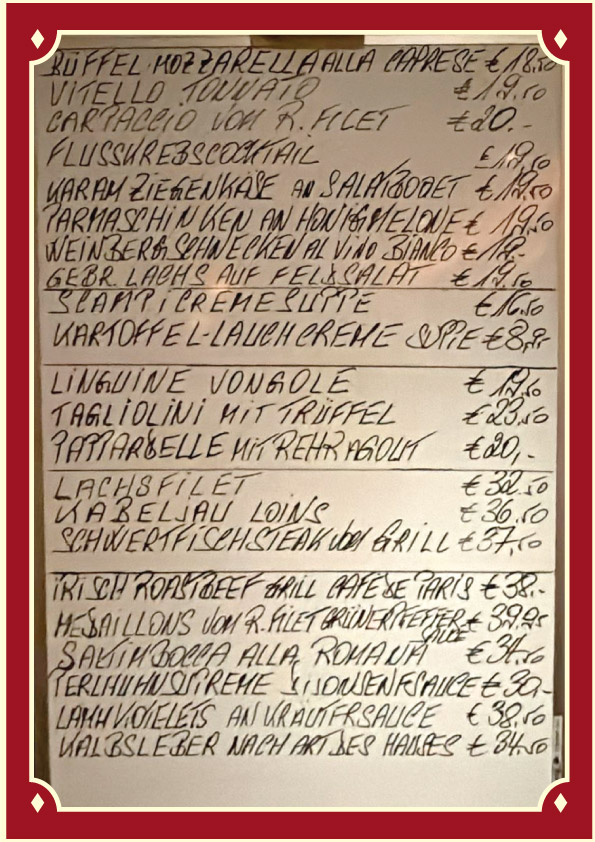 BÜFFEL-MOZZARELLA ALLA CAPRESE € 18,50
VITELLO TONNATO € 19,50
CARPACCIO VOM R.FILET € 20.-
FLUSSKREBSCOCKTAIL € 19,50
KARAM ZIEGENKÄSE AN SALATBOUET € 19,50
PARMASCHINKEN AN HONIGMELONE € 19,50
WEINBERGSCHNECKEN AL VINO BIANCO
GEBR. LACHS AUF FELDSALAT € 19,50
SCAMPICREMESUPPE € 16,50
KARTOFFEL-LAUCHCREME SUPPE
LINGUINE VONGOLE € 19,50
TAGLIOLINI MIT TRÜFFEL € 23,50
PAPPARDELLE MIT REHRAGOUT € 20,-
LACHSFILET € 32.50
KABELJAU LOINS € 36,50
SCHWERTFISCHSTEAK VOM GRILL € 37,50
IRISCH ROASTBEEF GRILL CAFE DE PARIS € 38.-
MEDAILLONS VOM R.FILET GRÜNERPFEFFER €
SAUCE
SALTIMBOCCA ALLA ROMANA € 34,50
PERLHUHNSUPREME DIJONSENFSAUCE € 30,-
LAMMKOTELETS AN KRÄUTERSAUCE € 38,50
KALBSLEBER NACH ART DES HAUSES € 34.50